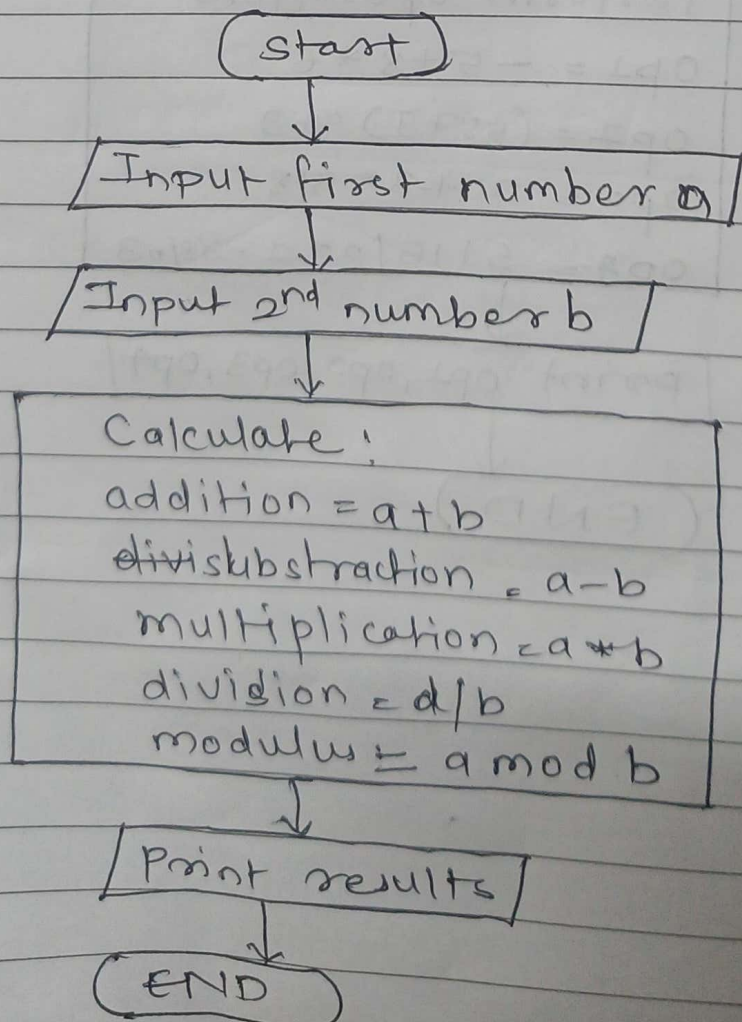 Start
Input first number a
Input 2nd number b
Calculate:
addition = a+b
substraction = a-b
multiplication = a*b
dividion = d/b
modulus = a mod b
Print results
END